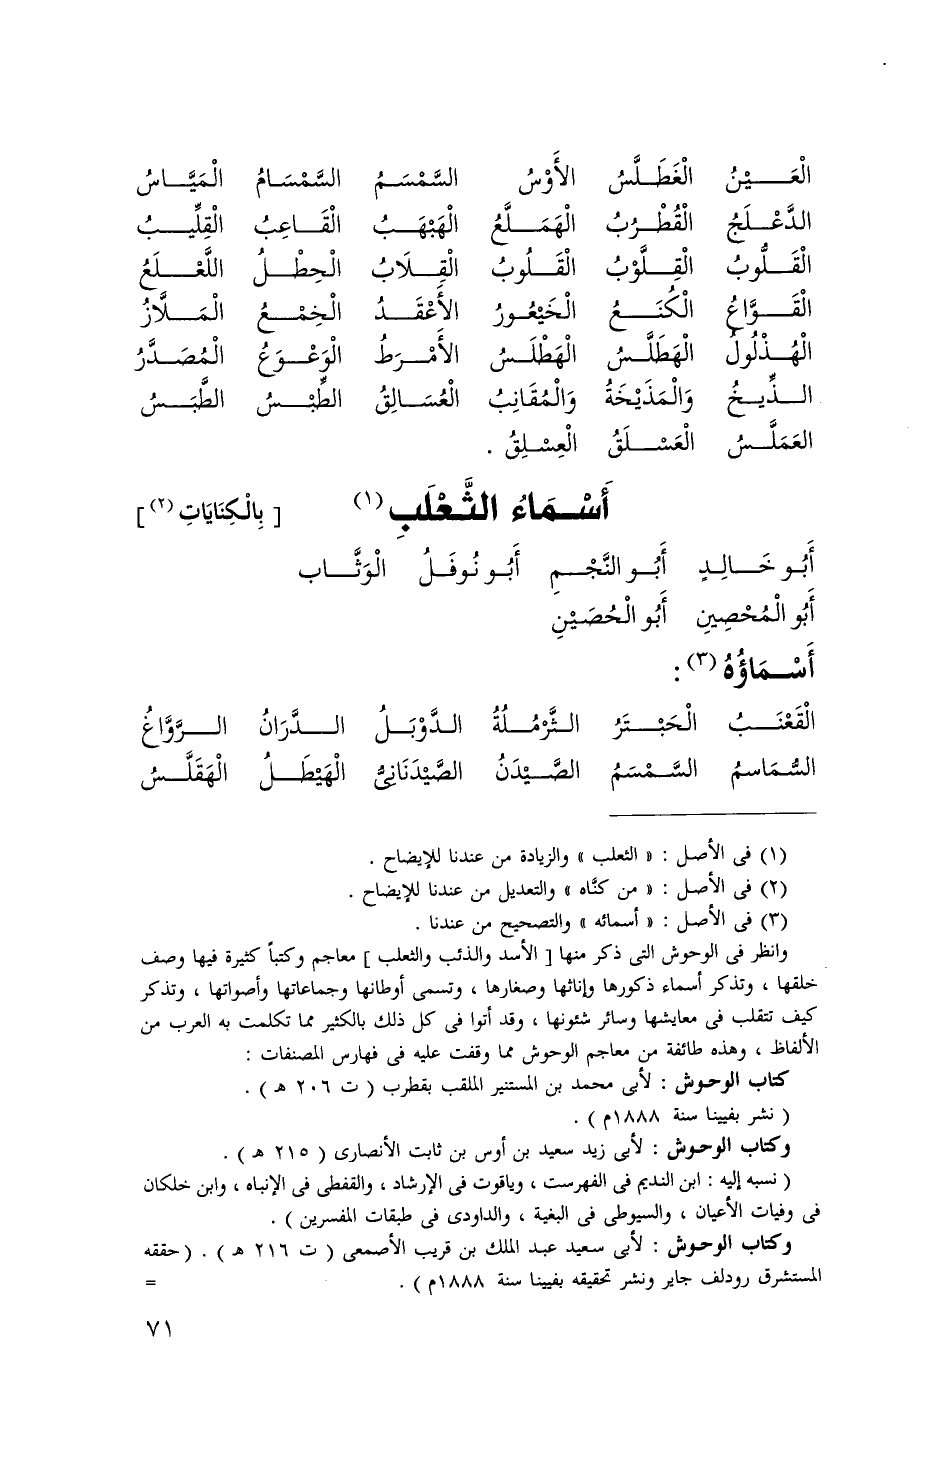 الْعَـــيْنُ الْغَطَلَّسُ الأَوْسُ السَّمْسَـمُ السَّمْسَـامُ الْمَيَّـاسُ
الدَّعْـلَجُ الْقُطْـرُبُ الْهَمَـلَّعُ الْهَبْهَـبُ الْقَـاعِبُ الْقِلِّيبُ
الْقَـلُّوبُ الْقِـلَّوْبُ الْقَـلُوبُ الْقِـلَابُ الْـحِطْـلُ اللَّعْـلَعُ
الْقَـوَّاعُ الْكُتَـعُ الْخَيْعُـورُ الأَعْقَـدُ الْـخِمْـعُ الْمَـلَّازُ
الْهُـذْلُولُ الْهَطَلَّسُ الْهَطْلَسُ الأَمْـرَطُ الْوَعْـوَعُ الْمُصَـدَّرُ
الـذِّيـخُ وَالْمَذْيَخَةُ وَالْمُقَانِبُ الْعُسَـالِقُ الطِّبْـسُ الطَّبَـسُ
العَمَلَّـسُ الْعَسْـلَقُ الْعِسْـلِقُ .
أَسْـمَاءُ الثَّـعْلَبِ (١) [ بِالْكِنَايَاتِ (٢) ]
أَبُـو خَـالِـدٍ أَبُـو النَّجْـمِ أَبُـو نُوفَـلُ الْوَثَّـاب
أَبُو الْمُحْصِينِ أَبُو الْحُصَيْنِ
أَسْـمَاؤُهُ (٣) :
الْقَعْنَـبُ الْحَبْـتَرُ التُّرْمُـلَةُ الـدَّوْبَـلُ الـدَّرَانُ الـرَّوَّاغُ
السُّمَاسِمُ السَّـمْسَمُ الصَّـيْدَنُ الصَّيْدَنَانِيُّ الْهَيْطَـلُ الْهَقَلَّـسُ
(١) فى الأصل : « الثعلب » والزيادة من عندنا للإيضاح .
(٢) فى الأصل : « من كنَّاه » والتعديل من عندنا للإيضاح .
(٣) فى الأصل : « أسمائه » والتصحيح من عندنا .
وانظر فى الوحوش التى ذكر منها [ الأسد والذئب والثعلب ] معاجم وكتباً كثيرة فيها وصف
خلقها ، وتذكر أسماء ذكورها وإناثها وصغارها ، وتسمى أوطانها وجماعاتها وأصواتها ، وتذكر
كيف تتقلب فى معايشها وسائر شئونها ، وقد أتوا فى كل ذلك بالكثير مما تكلمت به العرب من
الألفاظ ، وهذه طائفة من معاجم الوحوش مما وقفت عليه فى فهارس المصنفات :
كتاب الوحوش : لأبى محمد بن المستنير الملقب بقطرب ( ت ٢٠٦ هـ ) .
( نشر بفيينا سنة ١٨٨٨م ) .
وكتاب الوحوش : لأبى زيد سعيد بن أوس بن ثابت الأنصارى ( ٢١٥ هـ ) .
( نسبه إليه : ابن النديم فى الفهرست ، وياقوت فى الإرشاد ، والقفطى فى الإنباه ، وابن خلكان
فى وفيات الأعيان ، والسيوطى فى البغية ، والداودى فى طبقات المفسرين ) .
وكتاب الوحوش : لأبى سعيد عبد الملك بن قريب الأصمعى ( ت ٢١٦ هـ ) . (حققه
المستشرق رودلف جاير ونشر تحقيقه بفيينا سنة ١٨٨٨م ) . =
٧١